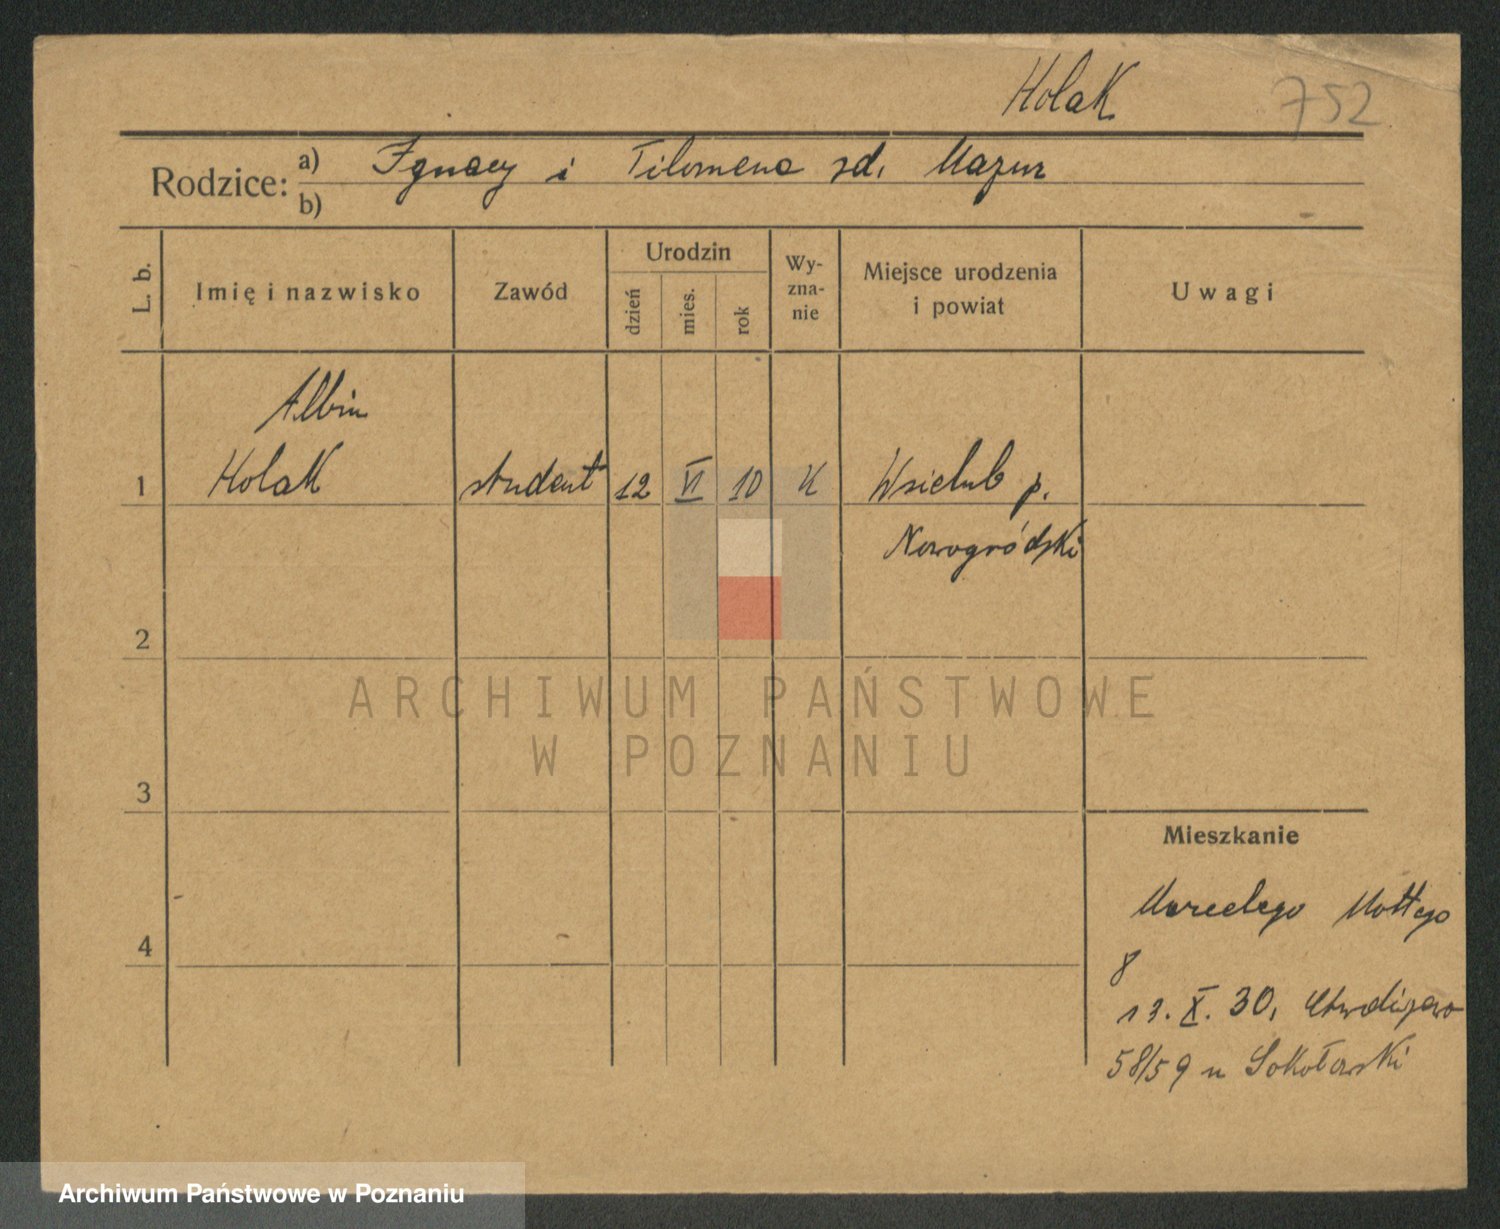 Holak 752
Rodzice: a) Ignacy i Filomena zd. Mazur
b)
L. b. Imię i nazwisko Zawód Urodzin dzień mies. rok Wy-zna-nie Miejsce urodzenia i powiat Uwagi
Albin
1 Holak student 12 VI 10 K Wsielub p.
Nowogródzki
2
3
4
Mieszkanie
Marcelego Mottego
8
13. X. 30,
58/59 u Sokołowski
ARCHIWUM PAŃSTWOWE
W POZNANIU
Archiwum Państwowe w Poznaniu